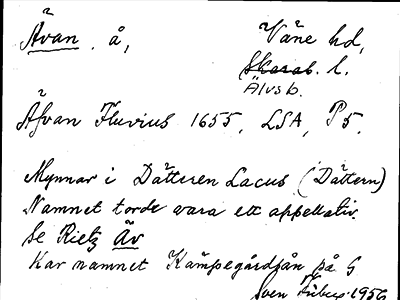 Ävan. å,
Väne hd,
Skarab. l.
Älvsb.
Äfvan Fluvius 1655, LSA, P5.
Mynnar i Dätteren Lacus (Dättern)
Namnet torde vara ett appellativ.
Se Rietz Äv
Har namnet Kämpegårdsån på G
Sven 1956